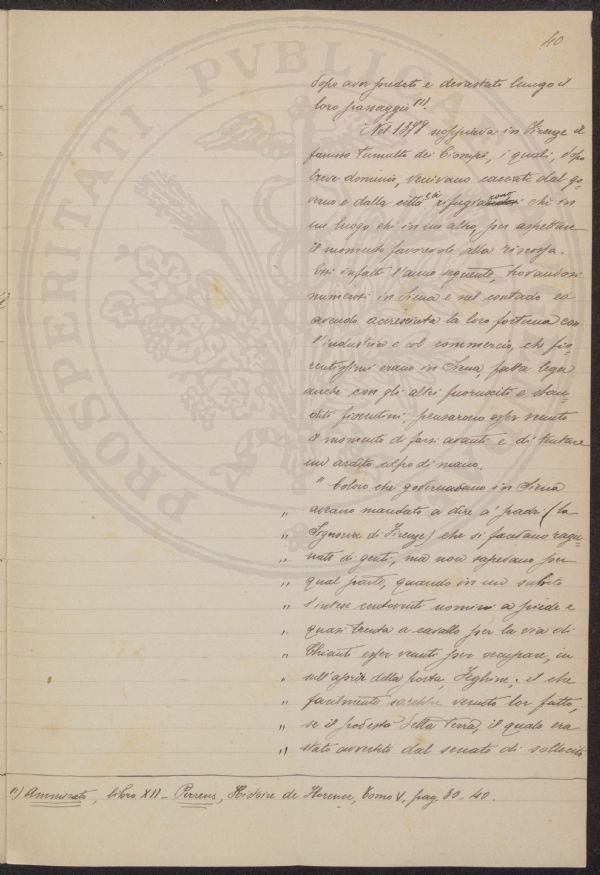 40
dopo aver predato e devastato lungo il
loro passaggio (1).
Nel 1378 scoppiava in Firenze il
famoso tumulto dei Ciompi, i quali, dopo
breve dominio, venivano cacciati dal go-
verno e dalla città e si rifugiarono chi in
un luogo chi in un altro, per aspettare
il momento favorevole alla riscossa.
Ivi infatti l'anno seguente, trovandosi
numerosi in Siena e nel contado ed
avendo accresciuta la loro fortuna con
l'industria e col commercio, che fio-
rentissimi erano in Siena, fatta lega
anche con gli altri fuorusciti e sban-
diti fiorentini, pensarono esser venuto
il momento di farsi avanti e di tentare
un ardito colpo di mano.
" Coloro che governavano in Siena
" aveano mandato a dire a' padri (la
" Signoria di Firenze) che si facevano ragu-
" nate di genti, ma non sapevano per
" qual parte, quando in un subito
" s'intese centoventi uomini a piede e
" quasi trenta a cavallo per la via di
" Chianti esser venuti per occupare, in
" sull'aprir della porta, Feghine; il che
" facilmente sarebbe venuto lor fatto,
" se il podestà della terra, il quale era
" stato avvertito dal senato di sollecito
(1) Ammirato, libro XII - Perrens, Histoire de Florence, Tomo V, pag. 30-40.
PROSPERITATI PVBLICAE